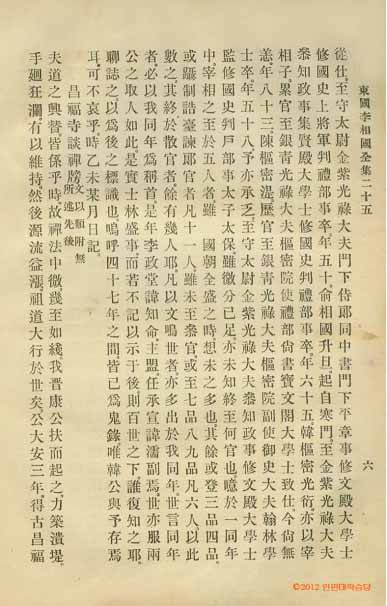 東國李相國全集二十五
六
從仕至守太尉金紫光祿大夫門下侍郎同中書門下平章事修文殿大學士
修國史上將軍判禮部事卒年五十俞相國升旦起自寒門至金紫光祿大夫
叅知政事集賢殿大學士修國史判禮部事卒年六十五韓樞密光衍亦以宰
相子累官至銀青光祿大夫樞密院使禮部尙書寶文閣大學士致仕今尙無
恙年八十三陳樞密湜歷官至銀青光祿大夫樞密院副使御史大夫翰林學
士卒年五十八予亦承乏至守太尉金紫光祿大夫叅知政事修文殿大學士
監修國史判戶部事太子太保雖微分已足亦未知終至何官也噫於一同年
中宰相之至於五人者雖 國朝全盛之時想未之多也其餘或登三品四品
或躡制誥臺諫耶官者凡十一人雖未至叅官或至七品八九品凡六人以此
數之其終於散官者餘有幾人耶凡以文鳴世者亦多出於我同年世言同年
者必以我同年爲稱首是年李政堂諱知命主盟任承宣諱濡副焉世亦服兩
公之取人如此是實士林盛事而若不記以示于後則百世之下誰復知之耶
聊誌之以爲後之標識也嗚呼四十七年之間皆已爲鬼錄唯韓公與予存焉
耳可不哀乎時乙未某月日記
昌福寺談禪牓 文以類附無所述先後
夫道之興替皆係乎時故禪法中微幾至如綫我晋康公扶而起之力築潰堤
手廻狂瀾有以維持然後源流益漲祖道大行於世矣公大安三年得古昌福
©2012 인핀대학습당